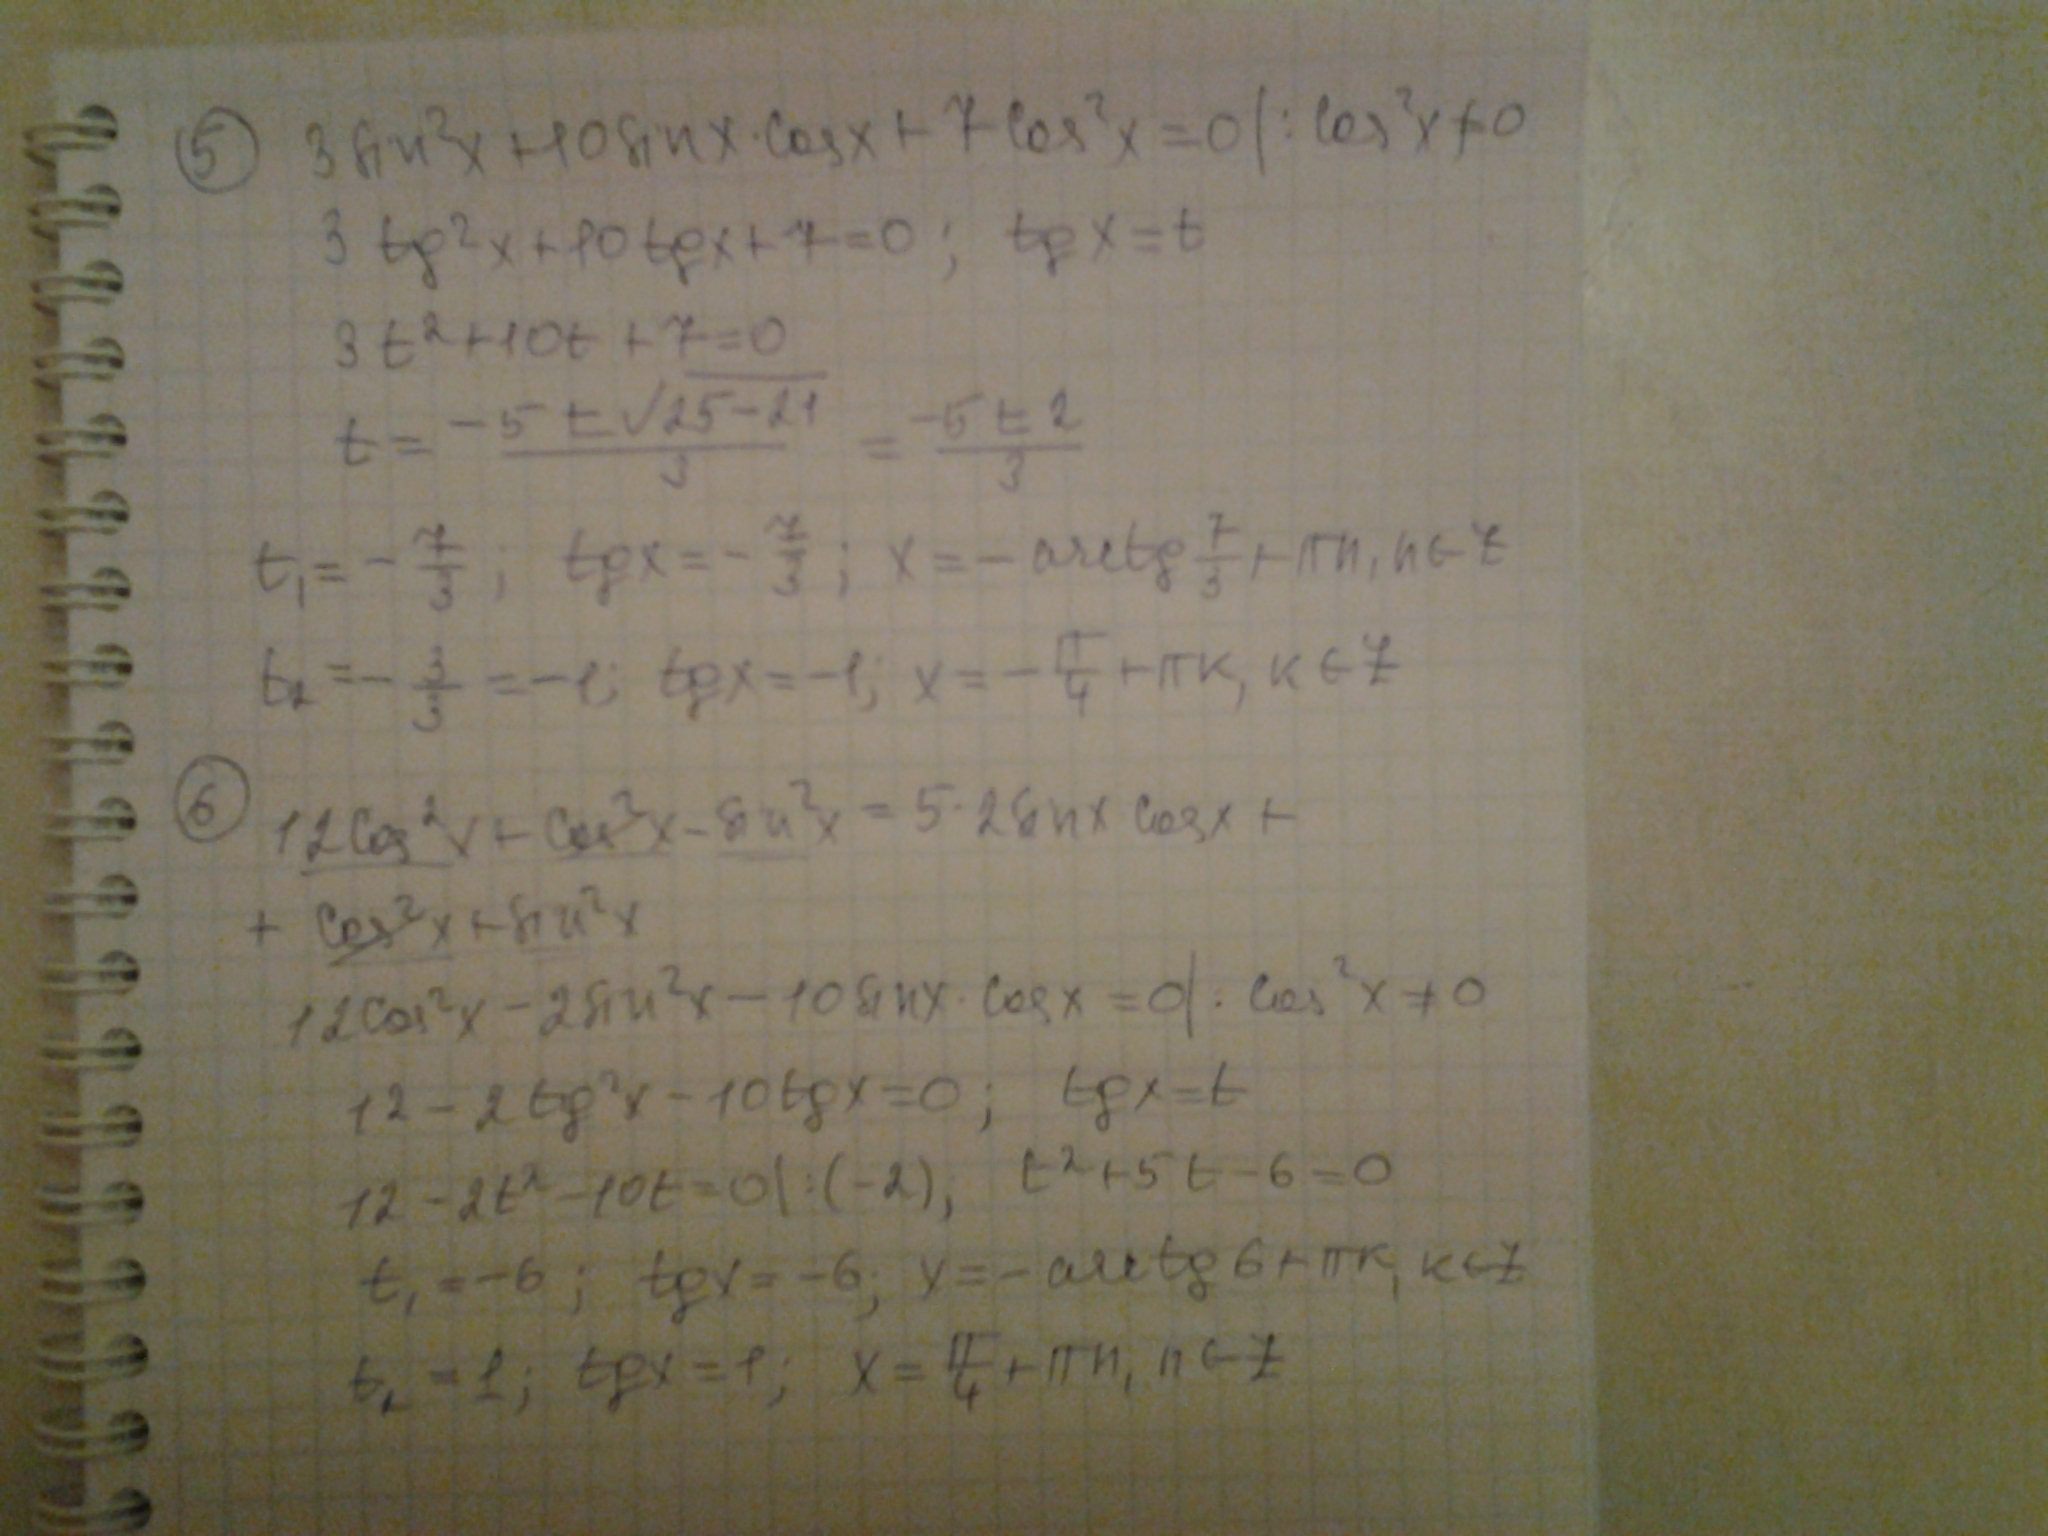 ⑤ 3sin²x+10sinx·cosx+7cos²x=0|:cos²x≠0
3tg²x+10tgx+7=0; tgx=t
3t²+10t+7=0
t=(-5±√(25-21))/3=(-5±2)/3
t₁=-7/3; tgx=-7/3; x=-arctg7/3+πn, n∈Z
t₂=-3/3=-1; tgx=-1; x=-π/4+πk, k∈Z
⑥ 12cos²x+cos²x-sin²x=5·2sinx cosx+
+cos²x+sin²x
12cos²x-2sin²x-10sinx·cosx=0|:cos²x≠0
12-2tg²x-10tgx=0; tgx=t
12-2t²-10t=0|:(-2); t²+5t-6=0
t₁=-6; tgx=-6; x=-arctg6+πk, k∈Z
t₂=1; tgx=1; x=π/4+πn, n∈Z